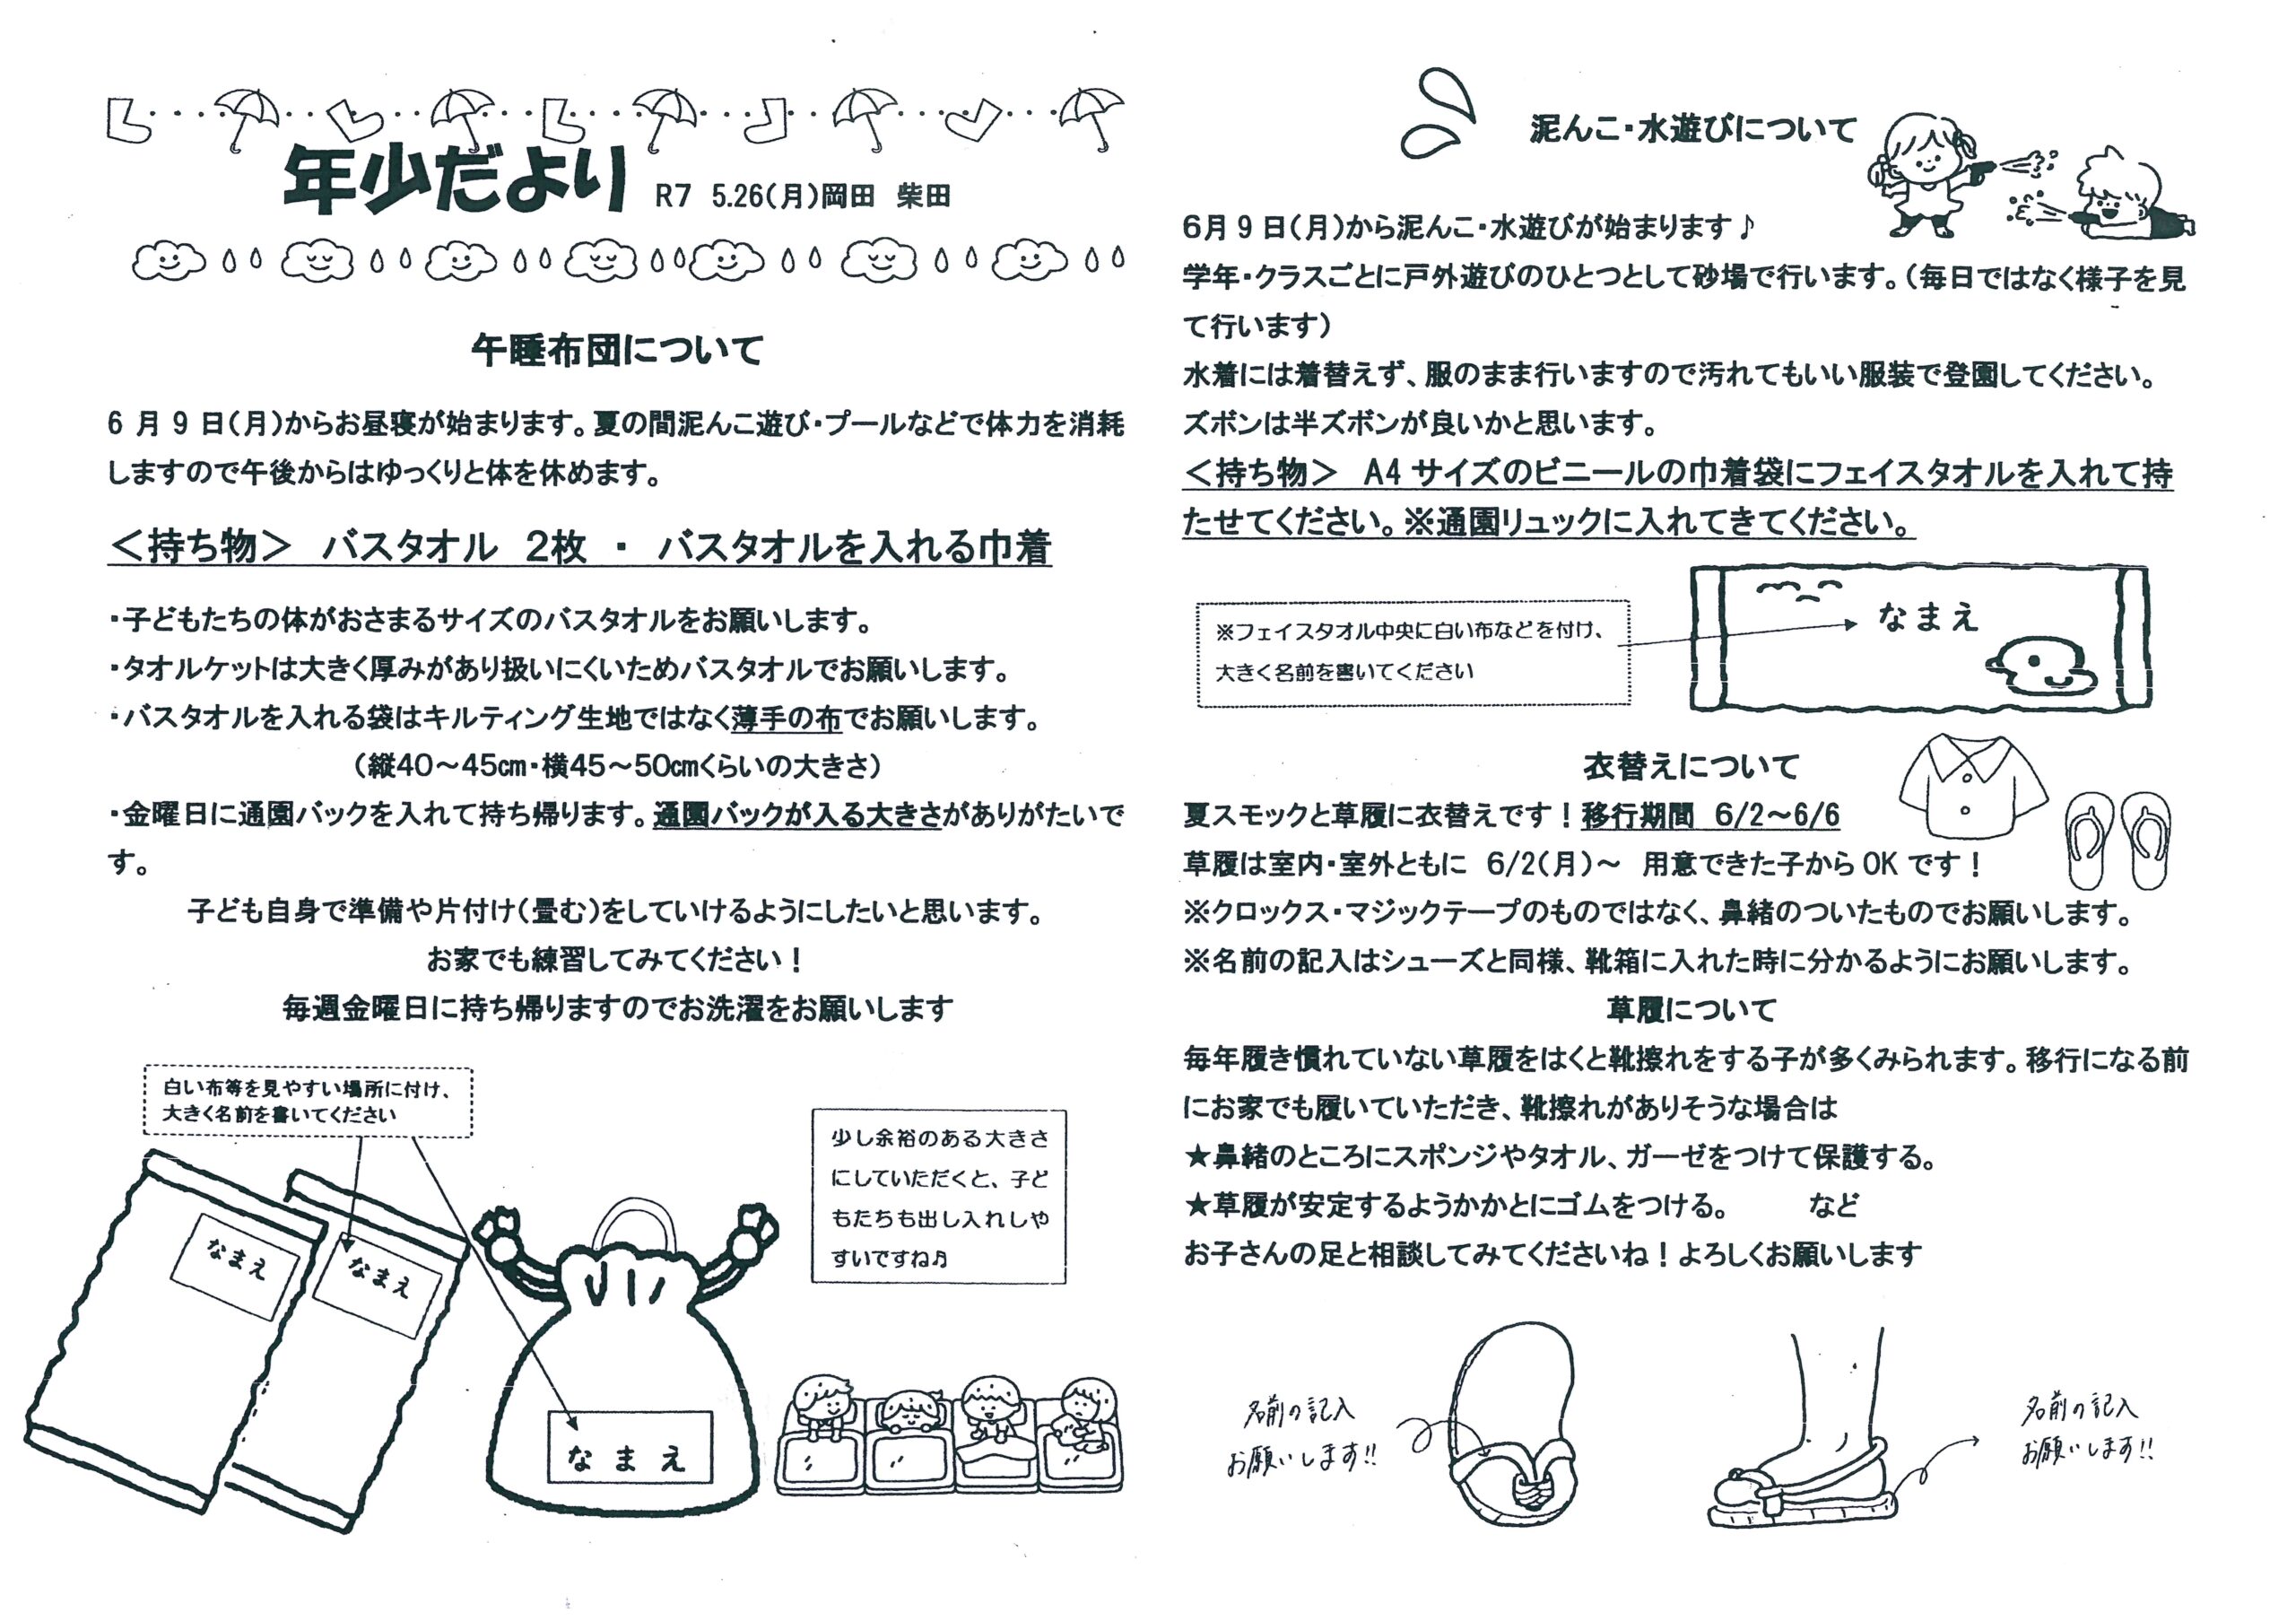 年少だより R7 5.26(月)岡田 柴田
午睡布団について
6月9日(月)からお昼寝が始まります。夏の間泥んこ遊び・プールなどで体力を消耗
しますので午後からはゆっくりと体を休めます。
<持ち物> バスタオル 2枚 ・ バスタオルを入れる巾着
・子どもたちの体がおさまるサイズのバスタオルをお願いします。
・タオルケットは大きく厚みがあり扱いにくいためバスタオルでお願いします。
・バスタオルを入れる袋はキルティング生地ではなく薄手の布でお願いします。
(縦40~45㎝・横45~50㎝くらいの大きさ)
・金曜日に通園バックを入れて持ち帰ります。通園バックが入る大きさがありがたいで
す。
子ども自身で準備や片付け(畳む)をしていけるようにしたいと思います。
お家でも練習してみてください!
毎週金曜日に持ち帰りますのでお洗濯をお願いします
白い布等を見やすい場所に付け、
大きく名前を書いてください
少し余裕のある大きさ
にしていただくと、子ど
もたちも出し入れしや
すいですね♫
なまえ
なまえ
なまえ
泥んこ・水遊びについて
6月9日(月)から泥んこ・水遊びが始まります♪
学年・クラスごとに戸外遊びのひとつとして砂場で行います。(毎日ではなく様子を見
て行います)
水着には着替えず、服のまま行いますので汚れてもいい服装で登園してください。
ズボンは半ズボンが良いかと思います。
<持ち物> A4サイズのビニールの巾着袋にフェイスタオルを入れて持
たせてください。※通園リュックに入れてきてください。
※フェイスタオル中央に白い布などを付け、
大きく名前を書いてください
なまえ
衣替えについて
夏スモックと草履に衣替えです!移行期間 6/2~6/6
草履は室内・室外ともに 6/2(月)~ 用意できた子からOKです!
※クロックス・マジックテープのものではなく、鼻緒のついたものでお願いします。
※名前の記入はシューズと同様、靴箱に入れた時に分かるようにお願いします。
草履について
毎年履き慣れていない草履をはくと靴擦れをする子が多くみられます。移行になる前
にお家でも履いていただき、靴擦れがありそうな場合は
★鼻緒のところにスポンジやタオル、ガーゼをつけて保護する。
★草履が安定するようかかとにゴムをつける。 など
お子さんの足と相談してみてくださいね!よろしくお願いします
名前の記入
お願いします!!
名前の記入
お願いします!!